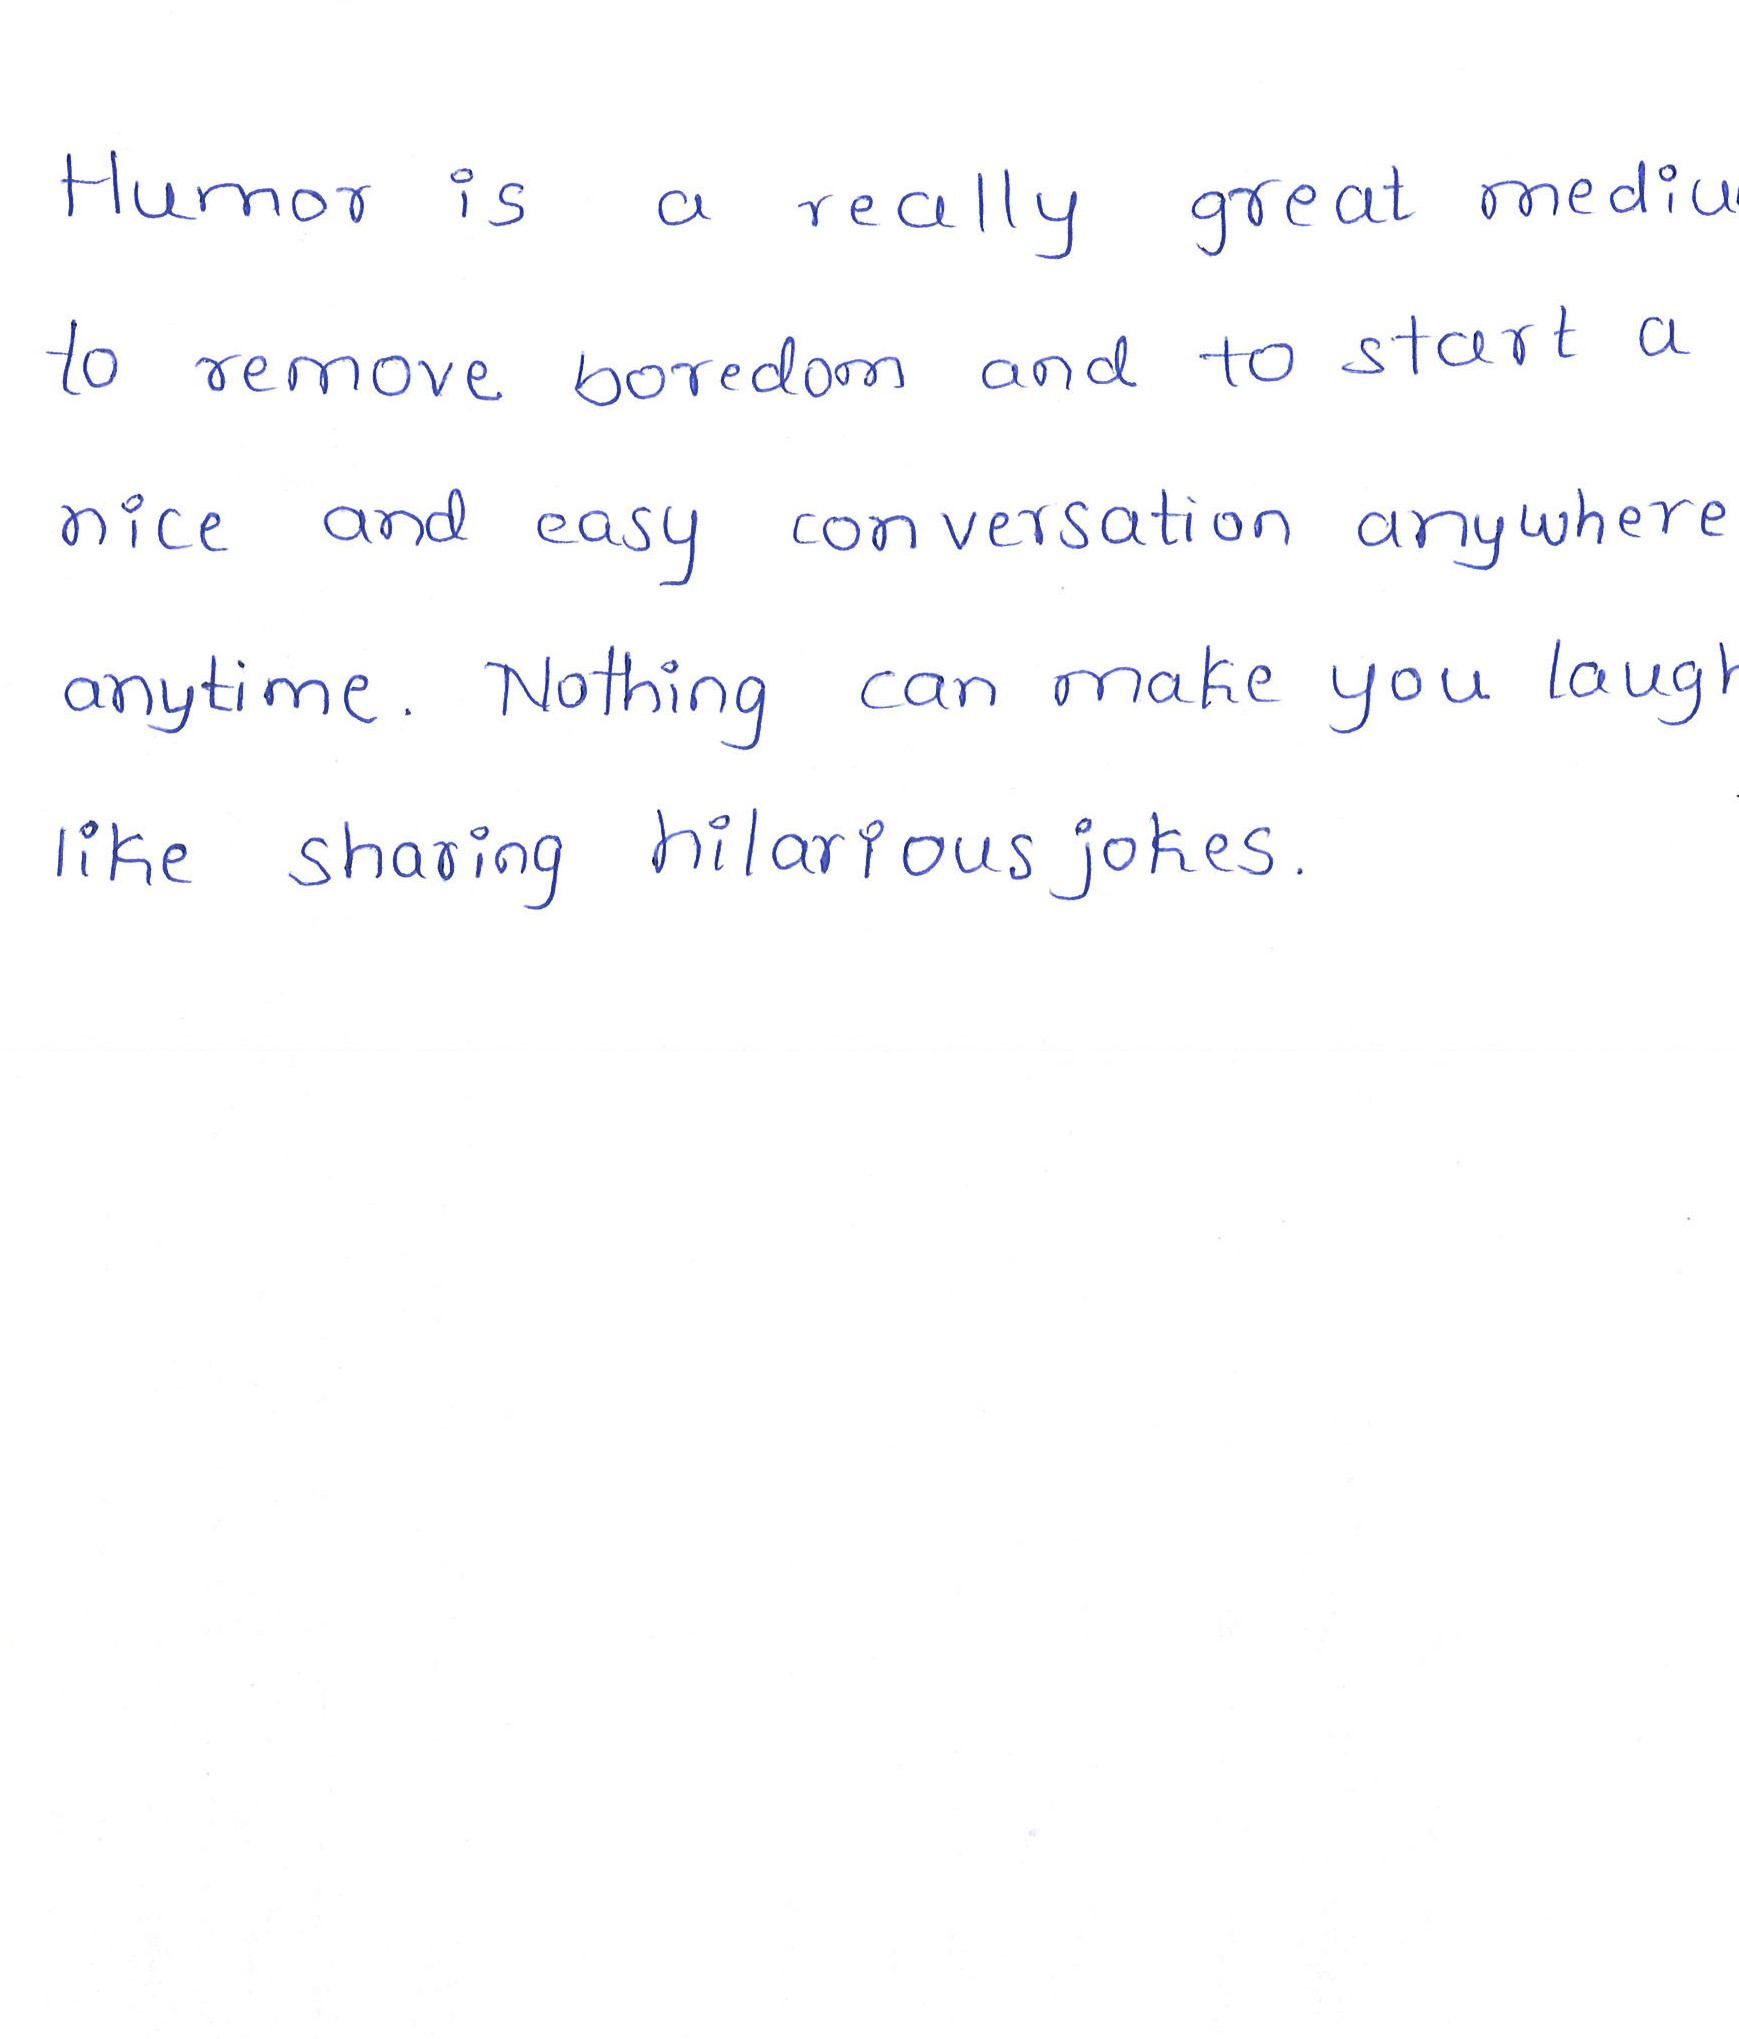 Humor is a really great mediu
to remove boredom and to start a
nice and easy conversation anywhere
anytime. Nothing can make you laugh
like sharing hilarious jokes.